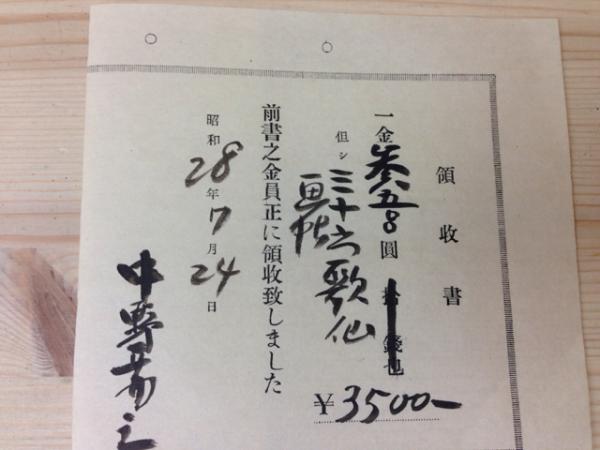 領收書
一金参阡五百圓
但シ三十六歌仙
画帖
¥3500-
前書之金員正に領收致しました
昭和28年7月24日
中野